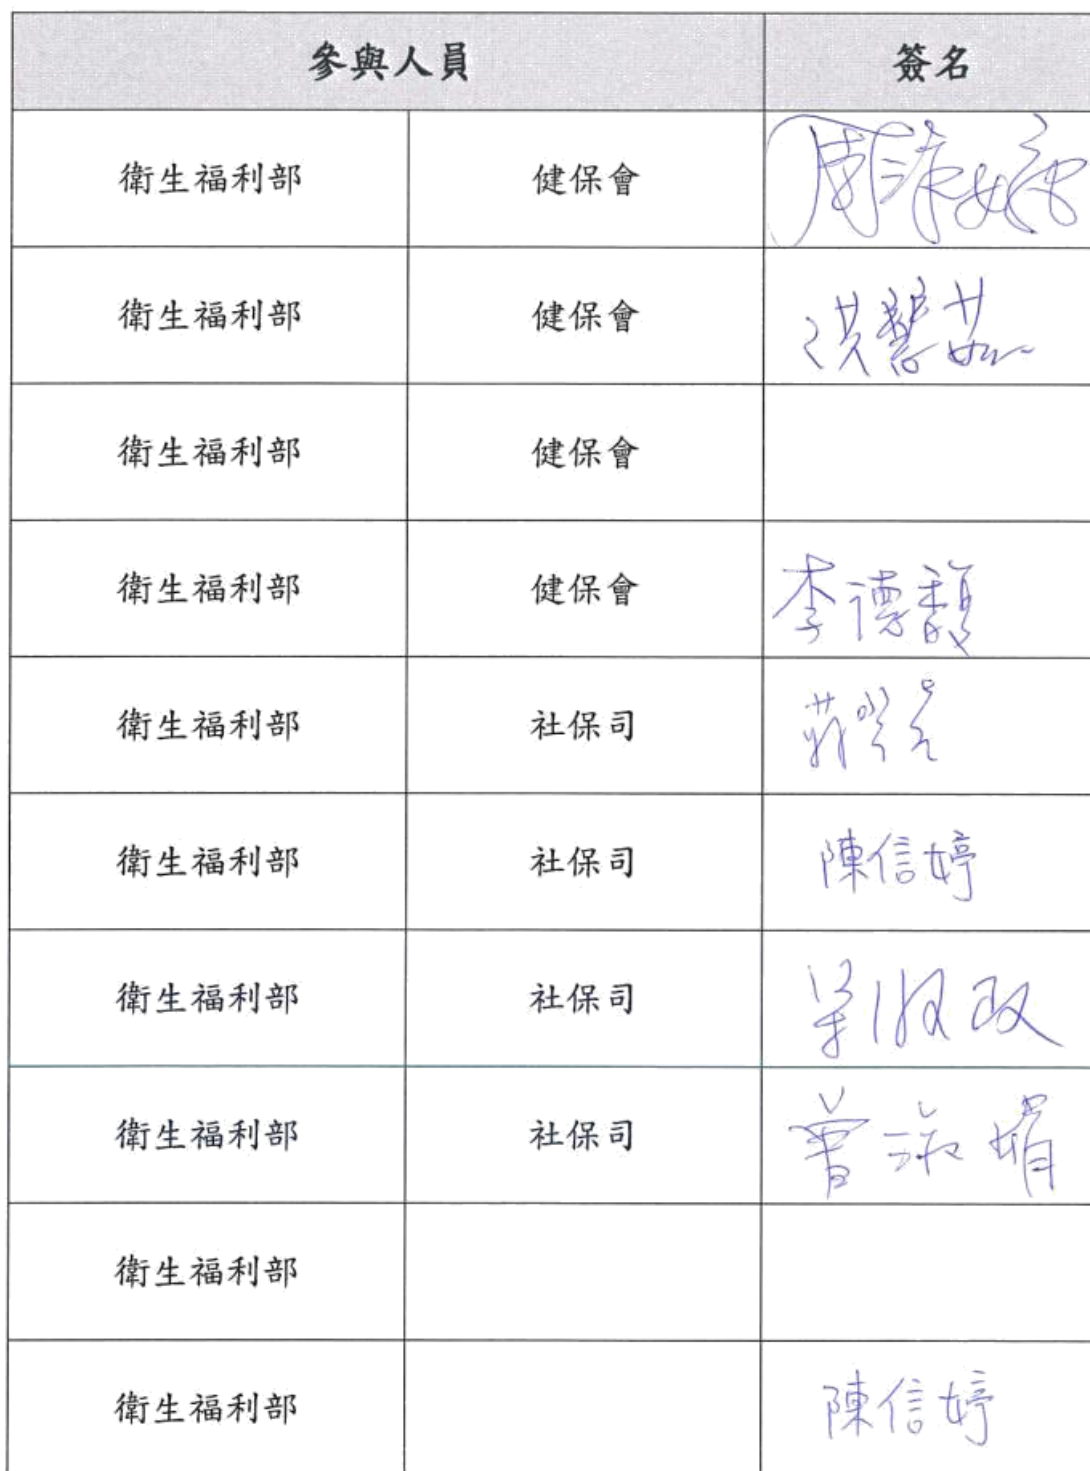 參與人員 簽名
衛生福利部 健保會 周淑婉
衛生福利部 健保會 洪慧茹
衛生福利部 健保會
衛生福利部 健保會 李德馥
衛生福利部 社保司
衛生福利部 社保司 陳信婷
衛生福利部 社保司 梁淑政
衛生福利部 社保司 曾淑娟
衛生福利部
衛生福利部 陳信婷